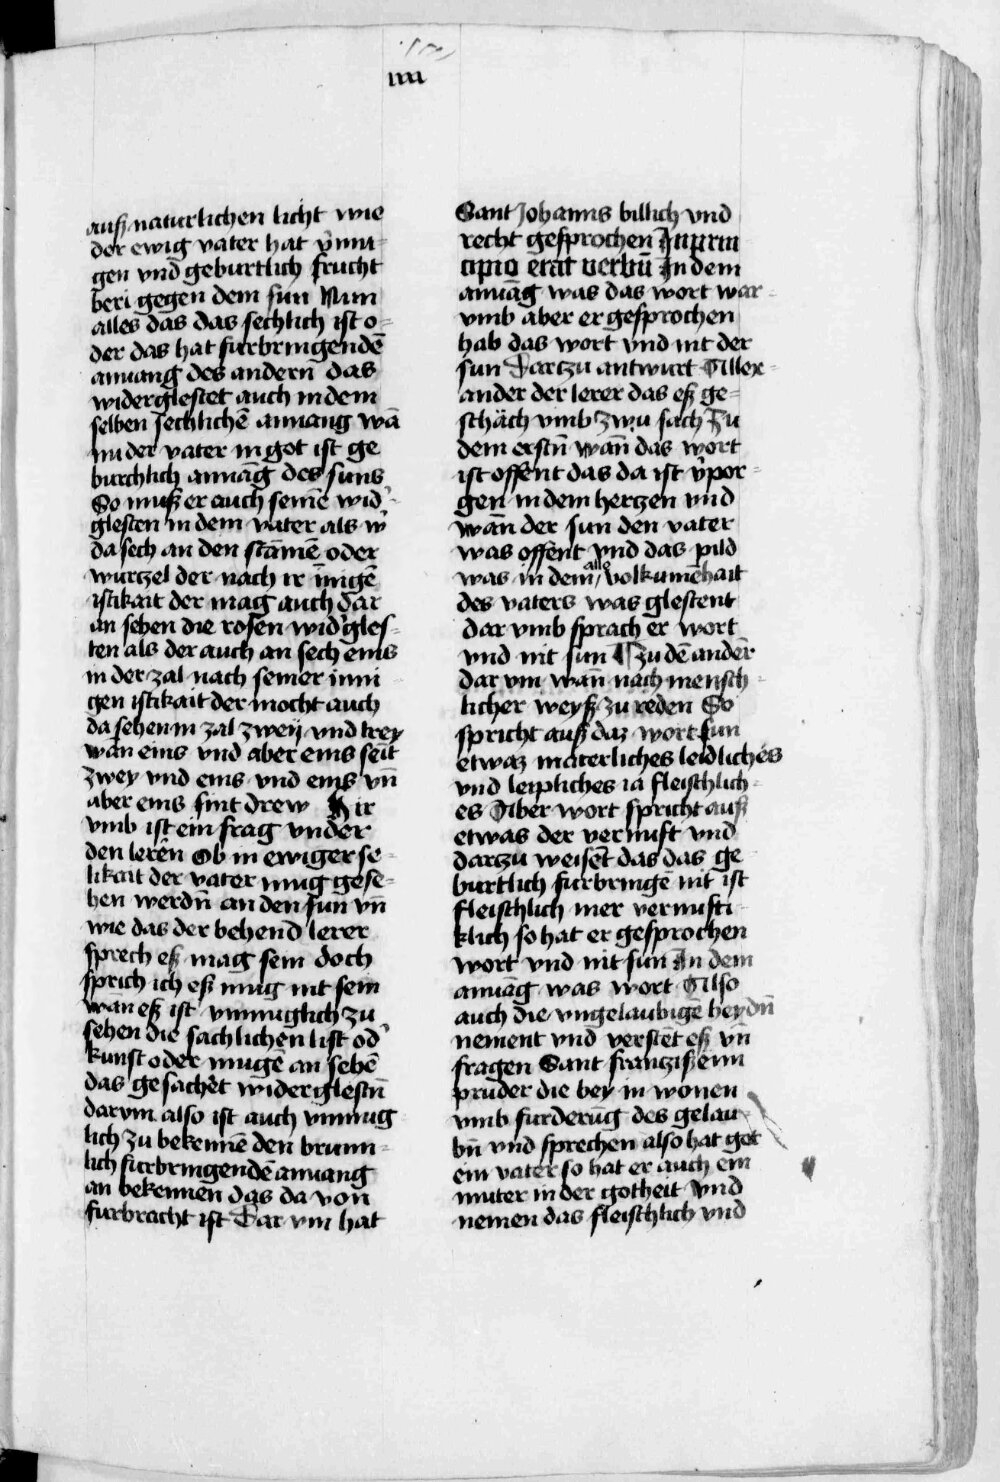 iiii
auß naturlichen licht wie
der ewig vater hat v̉nuu-
gen vnd geburtlich frucht
beri gegen dem sun Nun
alles das das sechlich ist o-
der das hat furbringendē
anuang des andern das
widerglestet auch in dem
selben sechlichē anuang wā
nu der vater in got ist ge
burchlich anuāg des suns
So muß er auch seinē wid̉-
glesten in dem vater als w̉
da sech an den stāmē oder
wurtzel der nach ir īnigē
istikait der mag auch dar
an sehen die rosen wid̉gles-
ten als der auch an sech eins
in der zal nach seiner inni
gen istikait der mocht auch
da sehen in zal zweÿ vnd trey
wān eins vnd aber eins seīt
zwey vnd eins vnd eins vn̄
aber eins sint drew Hir
vmb ist ein frag vnder
den lerēn Ob in ewiger se-
likait der vater mug gese-
hen werdn̄ an den sun vn̄
wie das der behend lerer
sprech eß mag sein doch
sprich ich eß mug nit sein
wān eß ist vnmuglich zu
sehen die sachlichen list od̉
kunst oder mugē an sehē
das gesachet widerglestn̄
darvm also ist auch vnmug
lich zu bekennē den brunn-
lich furbringendē anuang
an bekennen das da von
furbracht ist Dar vm hat
Sant Johanns billich vnd
recht gesprochen In prin
cipio erat verbū In dem
anuāg was das wort war-
vmb aber er gesprochen
hab das wort vnd nit der
sun Dartzu antwurt Allex-
ander der lerer das eß ge-
schäch vmb zwu sach Zu
dem erstn̄ wān das wort
ist offent das da ist v̉por-
gen in dem hertzen vnd
wān der sun den vater
was offent vnd das pild
was in dem alle volkumēhait
des vaters was glestent
dar vmb sprach er wort
vnd nit sun ¶ Zu dē andēr
dar vm wān nach mensch-
licher weyß zu reden So
spricht auß daz wort sun
etwaz materliches leidliches
vnd leipliches ia fleischlich-
es Aber wort spricht auß
etwas der vernuft vnd
dartzu weisēt das das ge
burtlich furbringē nit ist
fleischlich mer vernufti
klich so hat er gesprochen
wort vnd nit sun In dem
anuāg was wort Also
auch die vngelaubigē heydn̄
nement vnd verstēt eß vn̄
fragen Sant frantzißenn
pruder die bey in wonen
vmb furderūg des gelau-
bn̄ vnd sprechen also hat got
ein vater so hat er auch ein
muter in der gotheit vnd
nemen das fleischlich vnd